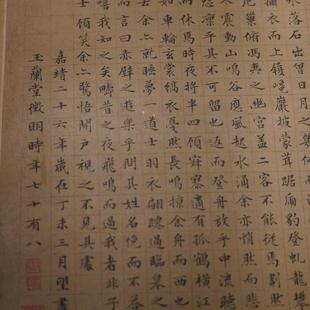 水落石出曾日月之幾
攝衣而上履巉巖披蒙茸踞虎豹登虬龍攀
危巢俯馮夷之幽宮蓋二客不能從焉劃然
木震動山鳴谷應風起水涌余亦悄然而悲
恐凜乎其不可留也返而登舟放乎中流聽
而休焉時夜將半四顧寂寥適有孤鶴橫江
如車輪玄裳縞衣戛然長鳴掠余舟而西也
去余亦就睡夢一道士羽衣翩躚過臨皋之
而言曰赤壁之遊樂乎問其姓名俛而不答
嘻我知之矣疇昔之夜飛鳴而過我者非子
士顧笑余亦驚悟開戶視之不見其處
嘉靖二十六年歲在丁未三月望書
玉蘭堂徵明時年七十有八